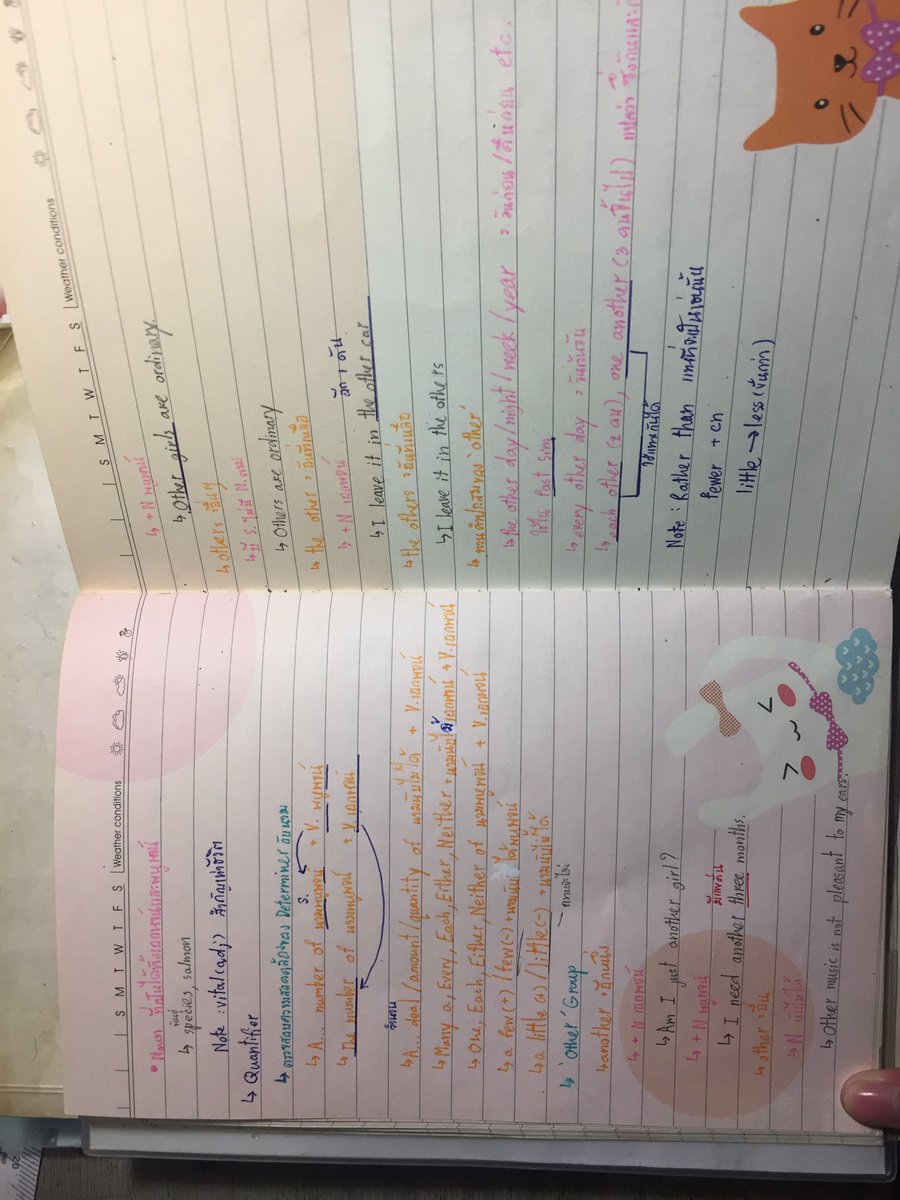 S M T W T F S Weather conditions
• Noun ที่เป็นได้ทั้งเอกพจน์และพหูพจน์
พันธุ์
↳ species, salmon
Note : vital (adj) สำคัญเท่าชีวิต
↳ Quantifier
↳ ตรวจสอบความสอดคล้องของ Determiner กับนาม
S.
↳ A... number of นามพหูพจน์ + V. พหูพจน์
↳ The number of นามพหูพจน์ + V. เอกพจน์
จำนวน
↳ A... deal/amount/quantity of นามนับไม่ได้ + V. เอกพจน์
↳ Many a, Every, Each, Either, Neither + นามนับได้เอกพจน์ + V. เอกพจน์
↳ One, Each, Either, Neither of นามพหูพจน์ + V. เอกพจน์
↳ a few (+) / few (-) + นามนับได้พหูพจน์
↳ a little (+) / little (-) + นามนับไม่ได้
↳ 'Other' Group
↳ another : อีกหนึ่ง
↳ + N เอกพจน์
↳ Am I just another girl?
↳ + N พหูพจน์
มีเลขคั่น
↳ I need another three months.
↳ other : อื่น
↳ N นับไม่ได้
↳ Other music is not pleasant to my ears.
S M T W T F S Weather conditions
↳ + N พหูพจน์
↳ Other girls are ordinary.
↳ others : อื่นๆ
↳ Others are ordinary
↳ the other : อันที่เหลือ
↳ + N เอกพจน์
↳ I leave it in the other car
↳ the others : อันที่เหลือ
↳ I leave it in the others
↳ the other day/night/week/year : วันก่อน/คืนก่อน etc.
ใช้ใน Past Sim
↳ every other day : วันเว้นวัน
↳ each other (2 คน), one another (3 คนขึ้นไป) แปลว่า ซึ่งกันและกัน
ใช้แทนกันได้
Note : Rather than แทนที่จะเป็นเช่นนั้น
fewer + cn
little → less (น้อยกว่า)